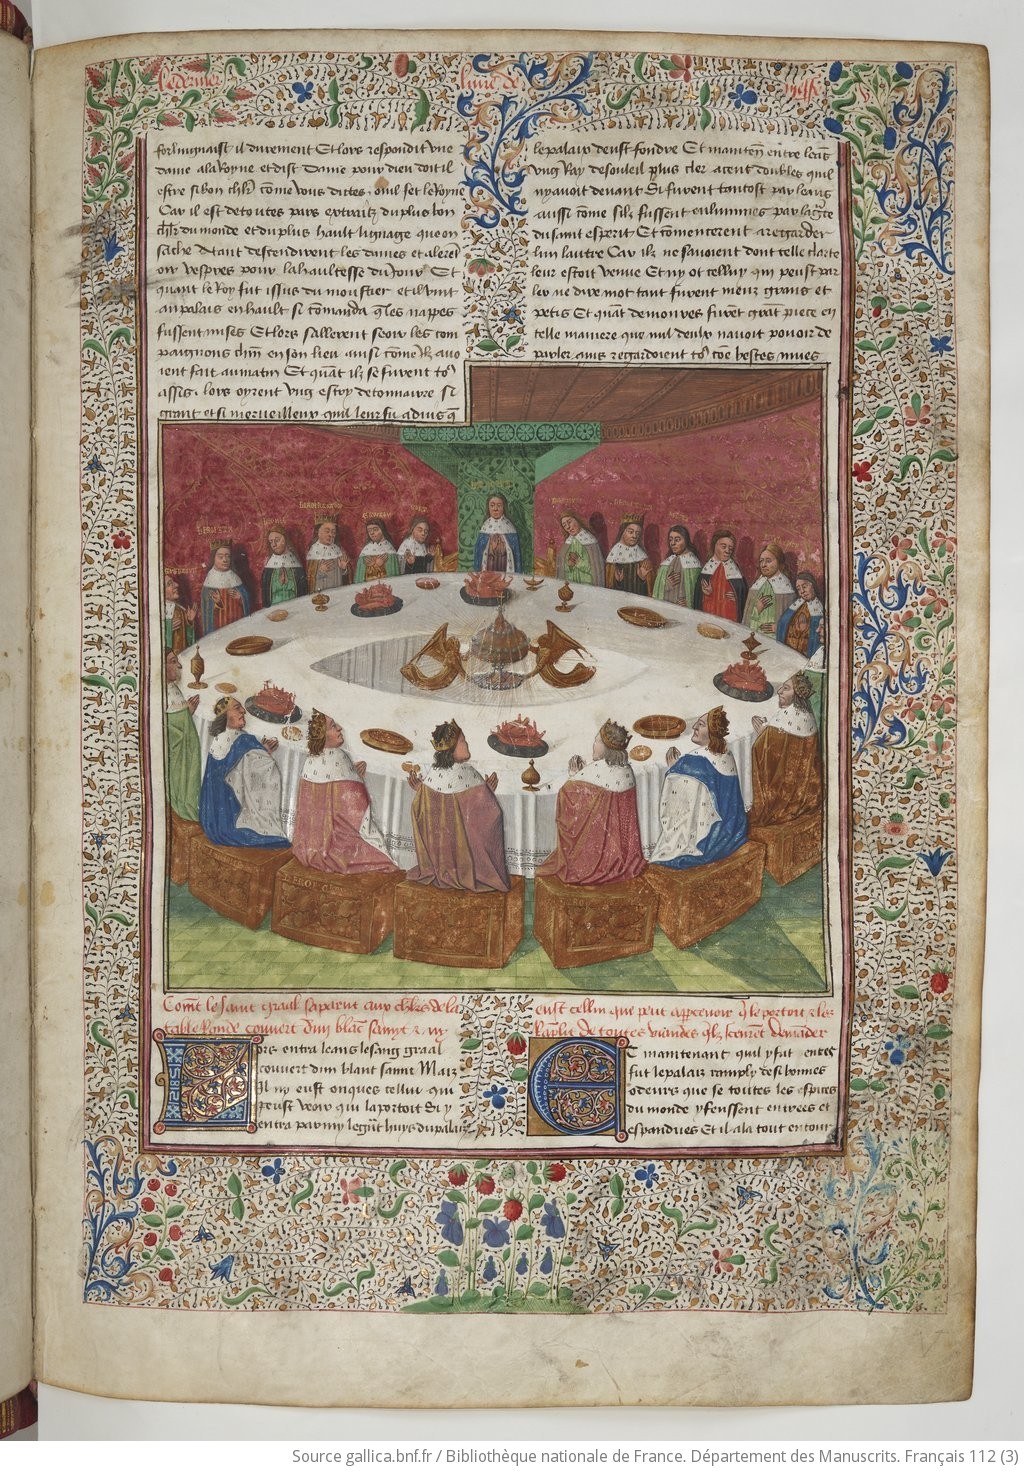 Le dernier livre de messe
forlingnaist il durement Et lors respondit une
dame ala Royne et dist Dame pour dieu doit il
estre si bon chlr cõme vous dictes. ouil fet le Royne
Car il est de toutes pars extrait du plus bon
chlr du monde et du plus hault lignage que on
sache Atant descendirent les dames et alerēt
oir vespres pour la haultesse du Jour Et
quant le Roy fut issus du moustier et il vint
au palais en hault si cõmanda q̃ les nappes
fussent mises Et lors sallerent seoir les com
paignons chũn en son lieu aussi cõme ilz auo
ient fait au matin Et quãt ilz se furent to9
assis. lors oyrent ung estroy de tonnairre si
grant et si merveilleux quil leur fu aduis q̃
le palaix deust fondre Et maintēn entre leãs
ung Ray de souleil plus cler a cent doubles quil
ny auoit deuant Si furent tantost par leans
aussi cõme silz fussent enluminés par la grc̃e
du saint esperit Et cõmencerent a regarder
lun lautre Car ilz ne sauoient dont telle clarte
leur estoit venue Et ny ot celluy qui peust par
ler ne dire mot tant furent meuz grans et
petis Et quãt demoures furēt grãt piece en
telle maniere que nul deulx nauoit pouoir de
parler ains regardoient to9 cõe bestes mues
Com̃t le saint graal saparut aux chlrs de la
table Ronde couvert dun blãc samyt & ny
eust cellui que peut appcevoir q̃ le portoit & les
Raplit de toutes viandes q̃lz sceurēt demãder
Lors entra leans le sang graal
couvert dun blant samit Maiz
il ny eust onques cellui qui
peust veoir qui la portoit Si y
entra par my le grãt huys du palaiz
Et maintenant quil y fut entre
fut le palaiz remply de si bonnes
odeurs que se toutes les espices
du monde y feussent entrees et
espandues Et il ala tout entour
Source gallica.bnf.fr / Bibliothèque nationale de France. Département des Manuscrits. Français 112 (3)